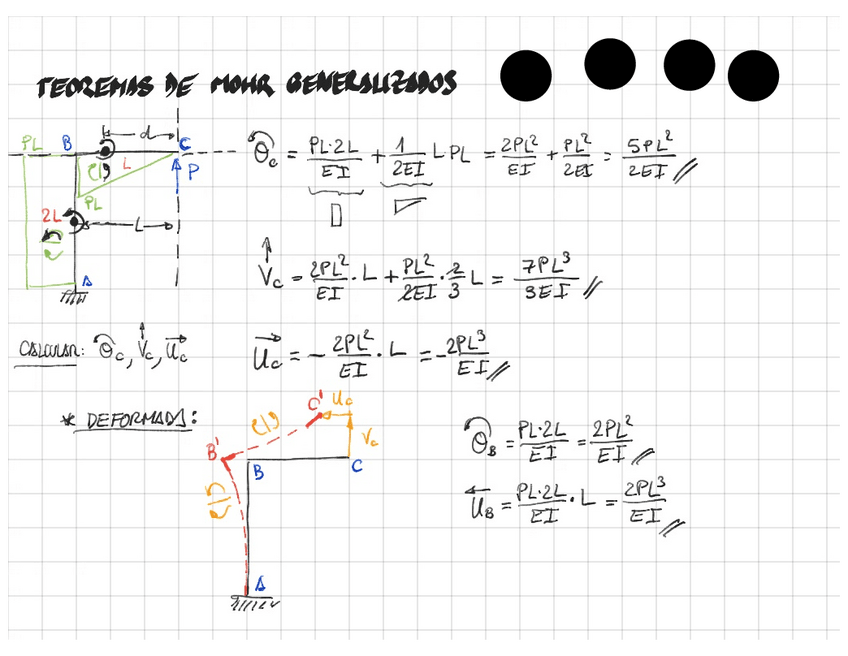 TEOREMAS DE MOHR GENERALIZADOS
PL B d C
L P
PL
2L
L
A
θc = PL·2L/EI + 1/2EI L·PL = 2PL²/EI + PL²/2EI = 5PL²/2EI //
Vc = 2PL²/EI · L + PL²/2EI · 2/3 L = 7PL³/3EI //
CALCULAR: θc, Vc, uc
uc = - 2PL²/EI · L = -2PL³/EI //
* DEFORMADA:
C' uc
B' B Vc C
A
θB = PL·2L/EI = 2PL²/EI //
uB = PL·2L/EI · L = 2PL³/EI //